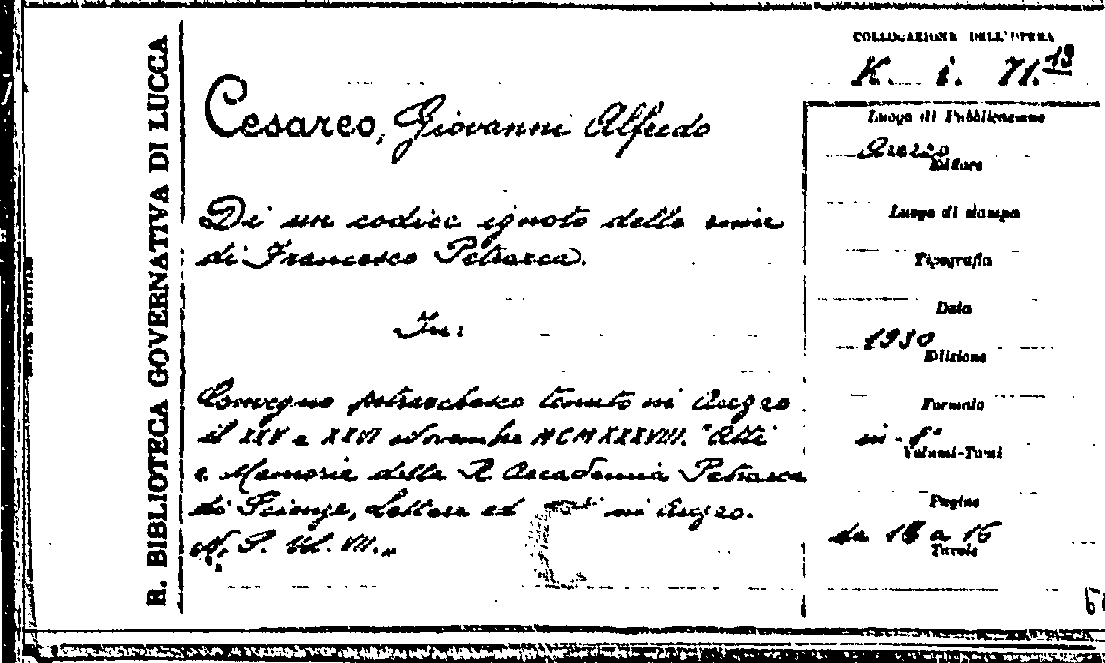 R. BIBLIOTECA GOVERNATIVA DI LUCCA
COLLOCAZIONE DELL'OPERA
K. i. 71.13
Cesareo, Giovanni Alfredo
Di un codice ignoto delle rime
di Francesco Petrarca.
In:
Convegno petrarchesco tenuto in Arezzo
il XXV e XXVI novembre MCMXXXVIII. "Atti
e Memorie della R. Accademia Petrarca
di Scienze, Lettere ed in Arezzo.
N. S. Vol. VII.,,
Luogo di Pubblicazione
Arezzo
Editore
Luogo di stampa
Tipografia
Data
1930
Edizione
Formato
in-8°
Volumi-Tomi
Pagine
da 13 a 16
Tavole